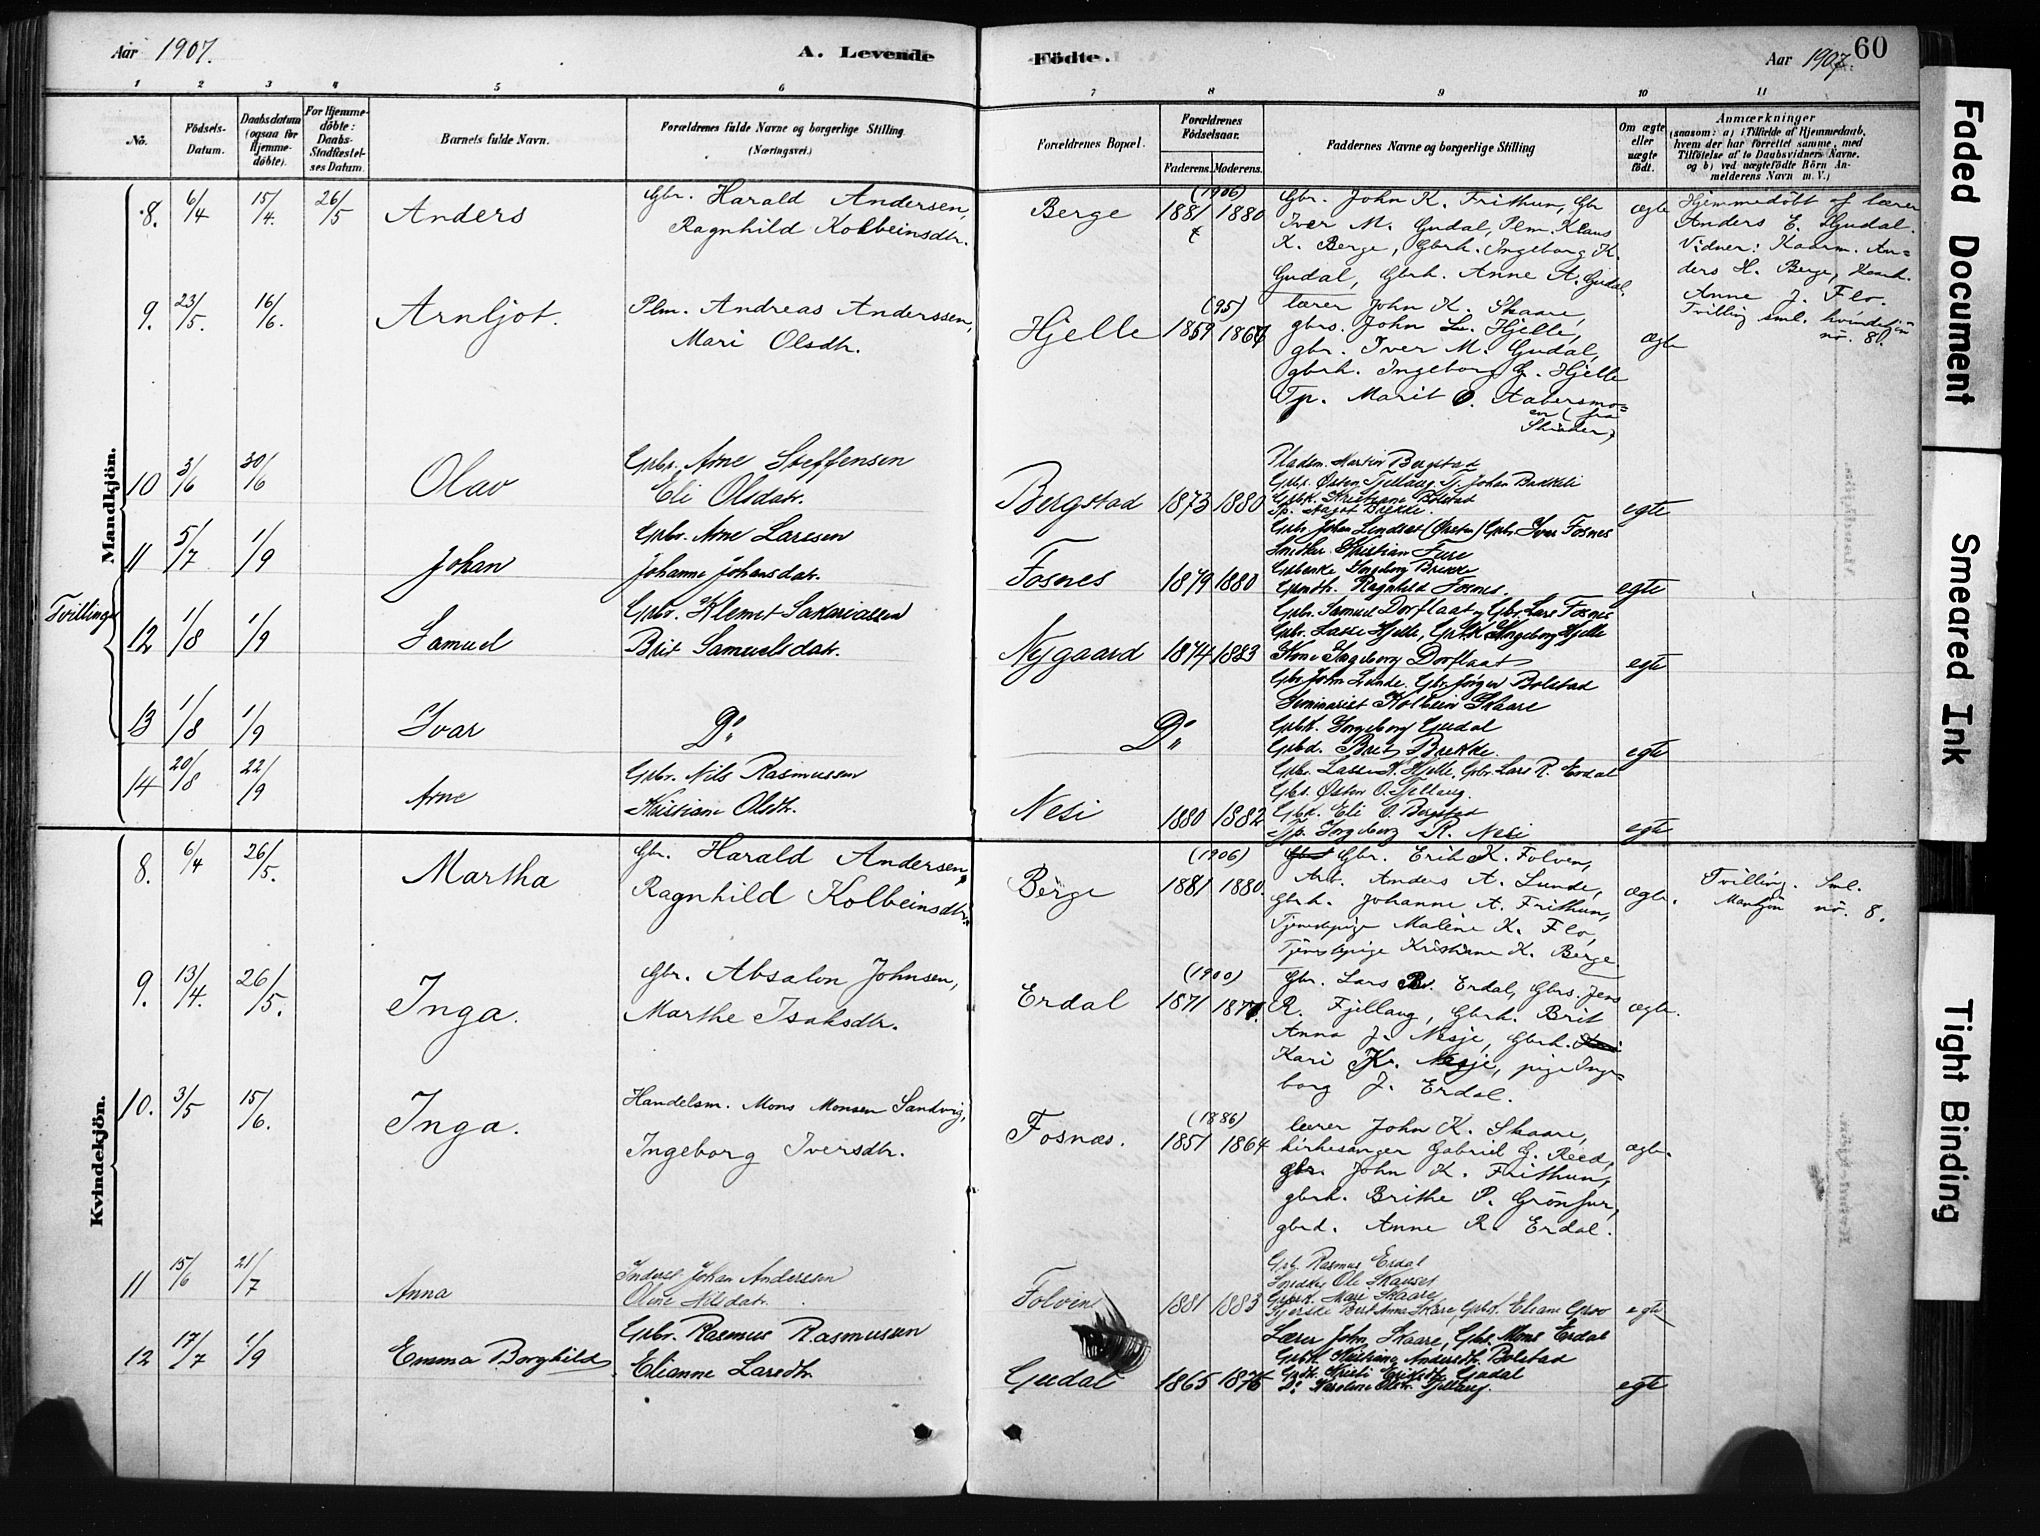 Aar 1907.
A. Levende
Födte.
Aar 1907.
60
1 2 3 4 5 6 7 8 9 10 11
No.
Födsels-Datum.
Daabsdatum (ogsaa for Hjemmedöbte).
For Hjemmedöbte: Daabs-Stadfæstelses Datum.
Barnets fulde Navn.
Forældrenes fulde Navne og borgerlige Stilling. (Næringsvei.)
Forældrenes Bopæl.
Forældrenes Födselsaar.
Faderens. Moderens.
Faddernes Navne og borgerlige Stilling
Om ægte eller uægte födt.
Anmærkninger
(saasom: a) i Tilfælde af Hjemmedaab, hvem der har forrettet samme, med Tilföielse af to Daabsvidners Navne. og b) ved uægtefödte Börn Anmelderens Navn m. V.)
Mandkjön.
8. 6/4 15/4. 26/5 Anders
Gbr. Harald Andersen,
Ragnhild Kolbeinsdtr.
Berge (1906) 1881 1880
Gbr. John K. Frithun, Gbr
Iver M. Gudal, Plm. Klaus
K. Berge, Gbrk. Ingeborg K.
Gudal, Gbrk. Anne A. Gudal.
ægte
Hjemmedöbt af lærer
Anders E. Gudal.
Vidner: Kaarm. An-
ders H. Berge, Kaark.
Anne J. Flo.
Tvilling sml. kvindekjön
nö. 8.
9. 23/5. 16/6. Arnljot.
Plm. Andreas Anderssen,
Mari Olsdtr.
Hjelle (95) 1859 1867
lærer John K. Skaare,
gbrs. John L. Hjelle,
gbr. Iver M. Gudal,
gbrk. Ingeborg G. Hjelle
Tp. Marit O. Aabersmo-
en (fra
Skiaker)
ægte
10 3/6 30/6 Olav
Grbr. Arne Steffensen
Eli Olsdatr.
Bergstad 1873 1880
Pladsm. Martin Bergstad
Grbr. Østen Tjellaug, Tj. Johan Bakkeli
Grbk. Kristiane Bolstad
Tp. Aagot Brekke.
egte
11 5/7 1/9 Johan
Grbr. Arne Larssen
Johanne Johansdatr.
Fosnes 1879 1880
Grbr. Johan Lindset (Ørsten) Grbr. Iver Fosnes
Snedker Kristian Fure
Grbenke Ingeborg Brekke
Grmdtr. Ragnhild Fosnes.
egte
Tvillinger
12 1/8 1/9 Samuel
Grbr. Klemet Sakariassen
Brit Samuelsdatr.
Nygaard 1874 1883
Grbr. Samuel Dorflaat, Gbr. Lars Fosnes
Grbr. Lasse Hjelle, Grbk. Ingeborg Hjelle
Kone Ingeborg Dorflaat
egte
13 1/8 1/9 Ivar
Do
Do
Gbr. John Lunde. Gbr. Jörgen Bolstad
Seminarist Kolbein Skaare
Grbk. Ingeborg Gudal
Grbd. Brit Brekke.
egte
14 20/8 22/9 Arne
Grbr. Nils Rasmussen
Kristiane Olsdtr.
Nesi 1880 1882
Grbr. Lasse K. Hjelle, Grbr. Lars R. Erdal
Gbr. Østen O. Tjellaug.
Gbk. Eli O. Bergstad
Tp. Ingeborg R. Nesi
egte
Kvindekjön.
8. 6/4 26/5. Martha
Gbr. Harald Andersen,
Ragnhild Kolbeinsdtr.
Berge (1906) 1881 1880.
Gbr. Erik K. Folven,
Arb. Anders A. Lunde,
Gbrk. Johanne A. Frithun,
Tjenestepige Maline K. Flo,
Tjenestepige Kristiane K. Berge
ægte.
Tvilling. Sml.
Mankjön nö. 8.
9. 13/4. 26/5. Inga.
Gbr. Absalon Johnsen,
Marthe Isaksdtr.
Erdal (1900) 1871 1871.
Gbr. Lars R. Erdal, Gbrs. Jens
R. Fjellaug, Gbrk. Brit
Anna J. Nesje, Gbrk.
Kari Kr. Nesje, pige Inge-
borg J. Erdal.
ægte.
10. 3/5 15/6. Inga.
Handelsm. Mons Monsen Sandvig,
Ingeborg Iversdtr.
Fosnæs. (1886) 1851 1864
lærer John K. Skaare,
kirkesanger Gabriel G. Reed,
gbr. John K. Frithun,
gbrk. Brithe P. Grönfur,
gbrd. Anne R. Erdal.
ægte.
11 15/6 21/7 Anna
Inderst Johan Anderssen
Oline Nilsdatr.
Folvin 1881 1883
Grb. Rasmus Erdal
Snedker Ole Skauset
Grbrk. Mari Skaare
Grbk. Eliane Grov
egte
12 17/7 1/9 Emma Borghild
Grbr. Rasmus Rasmussen
Elianne Larsdtr.
Gudal 1865 1876
Lærer John Skaare, Gbr. Mons Erdal
Grbk. Kristiane Andersdtr. Bolstad
Grdtr. Kristi Eriksdtr. Gudal
Do Karoline Olsdtr. Tjellaug.
egte
Faded Document
Smeared Ink
Tight Binding